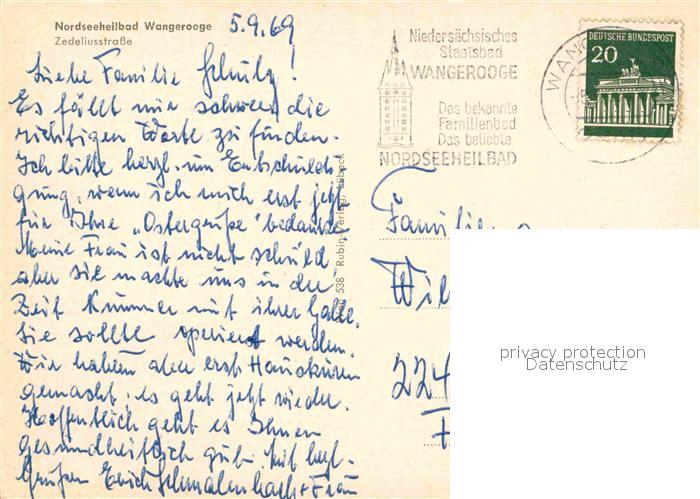 Nordseeheilbad Wangerooge
Zedeliusstraße
5.9.69
Liebe Familie Schulz!
Es fällt mir schwer die
richtigen Worte zu finden.
Ich bitte herzl. um Entschuldi
gung, wenn ich mich erst jetzt
für Ihre „Ostergrüße" bedanke
Meine Frau ist nicht schuld,
aber sie machte uns in der
Zeit Kummer mit ihrer Galle.
Sie sollte operiert werden.
Wir haben aber erst Hauskuren
gemacht, es geht jetzt wieder.
Hoffentlich geht es Ihnen
gesundheitlich gut. Mit herzl.
Grüßen Erich Schmalenbach + Frau
538 Rubin-Verlag, Lübeck
Niedersächsisches
Staatsbad
WANGEROOGE
Das bekannte
Familienbad
Das beliebte
NORDSEEHEILBAD
WANG
DEUTSCHE BUNDESPOST
20
Familie
Wil
224
privacy protection
Datenschutz